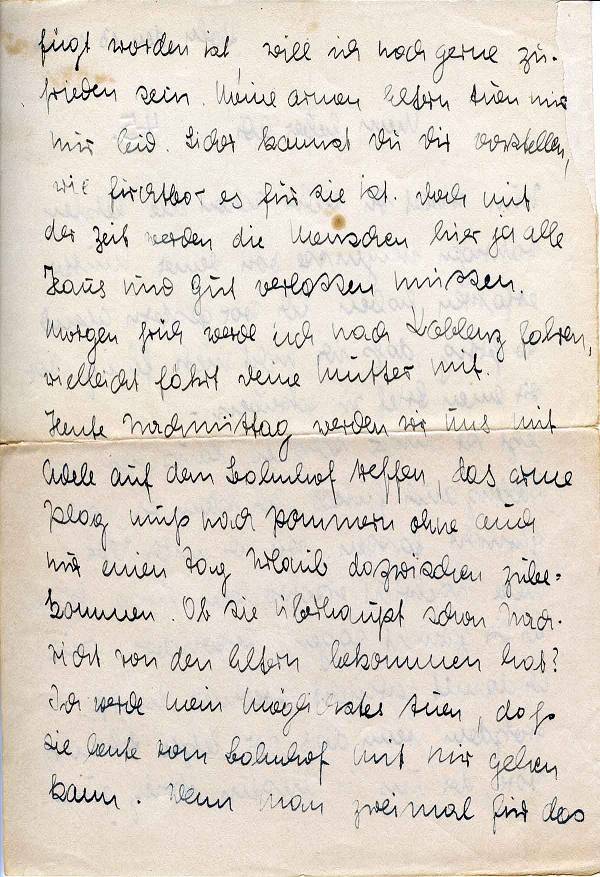 fügt worden ist, will ich noch gerne zu-
frieden sein. Meine armen Eltern tuen mir
nur leid. Sicher kannst du dir vorstellen,
wie furchtbar es für sie ist. Doch mit
der Zeit werden die Menschen hier ja alle
Haus und Gut verlassen müssen.
Morgen früh werde ich nach Koblenz fahren,
vielleicht fährt deine Mutter mit.
Heute Nachmittag werden wir uns mit
Adele auf dem Bahnhof treffen, das arme
Plag muß nach Pommern ohne auch
nur einen Tag Urlaub dazwischen zube-
kommen. Ob sie überhaupt schon Nach-
richt von den Eltern bekommen hat?
Ich werde mein Möglichstes tuen, daß
sie heute vom Bahnhof mit mir gehen
kann. Wenn man zweimal für das